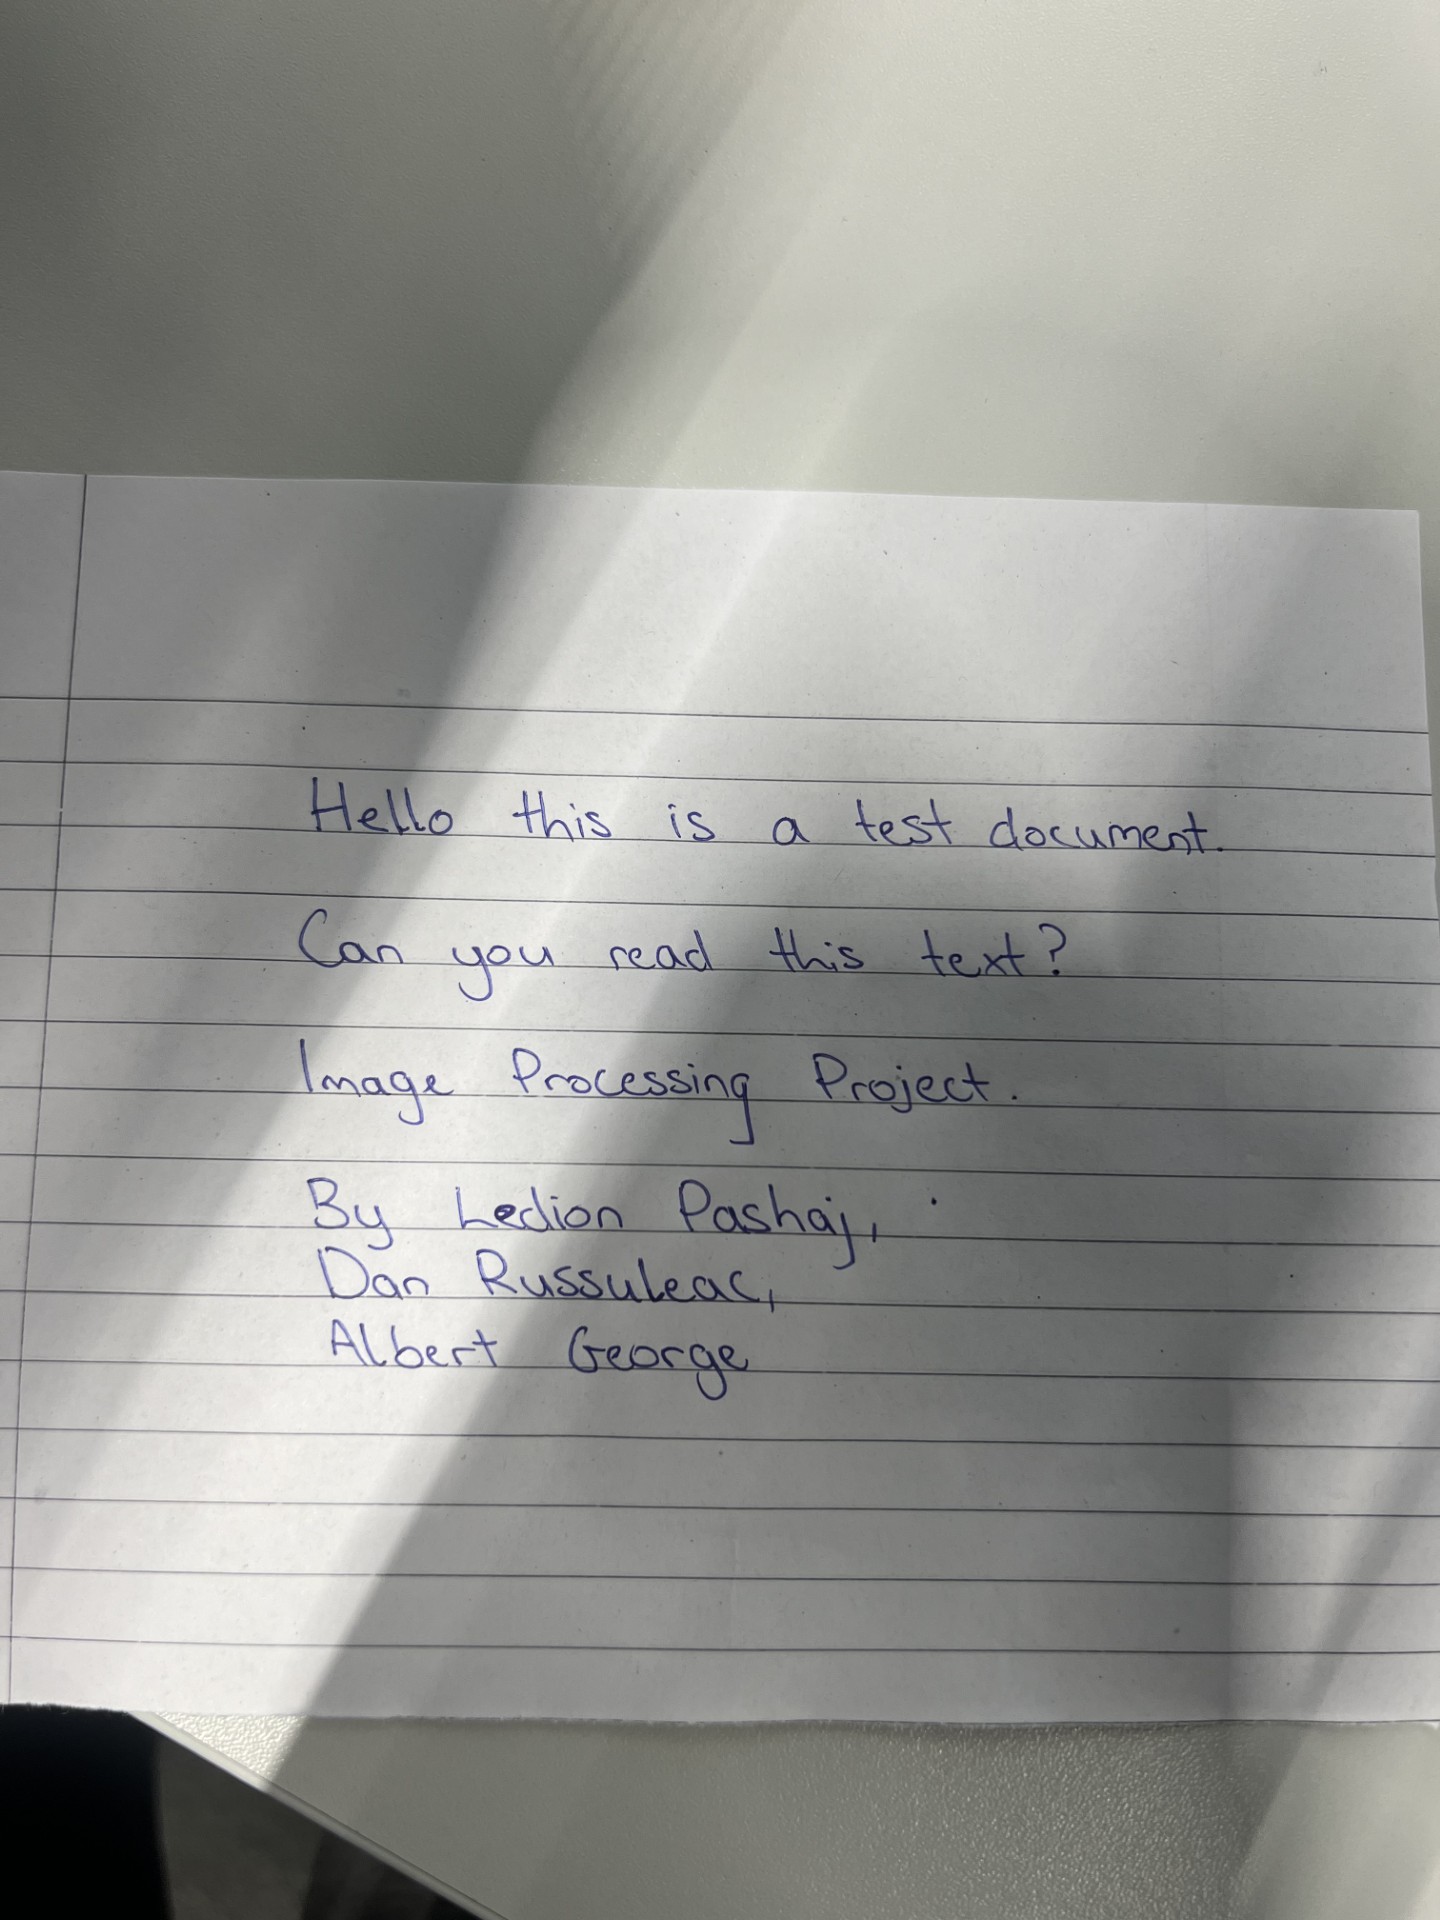 Hello this is a test document.
Can you read this text?
Image Processing Project.
By Ledion Pashaj,
Dan Russuleac,
Albert George